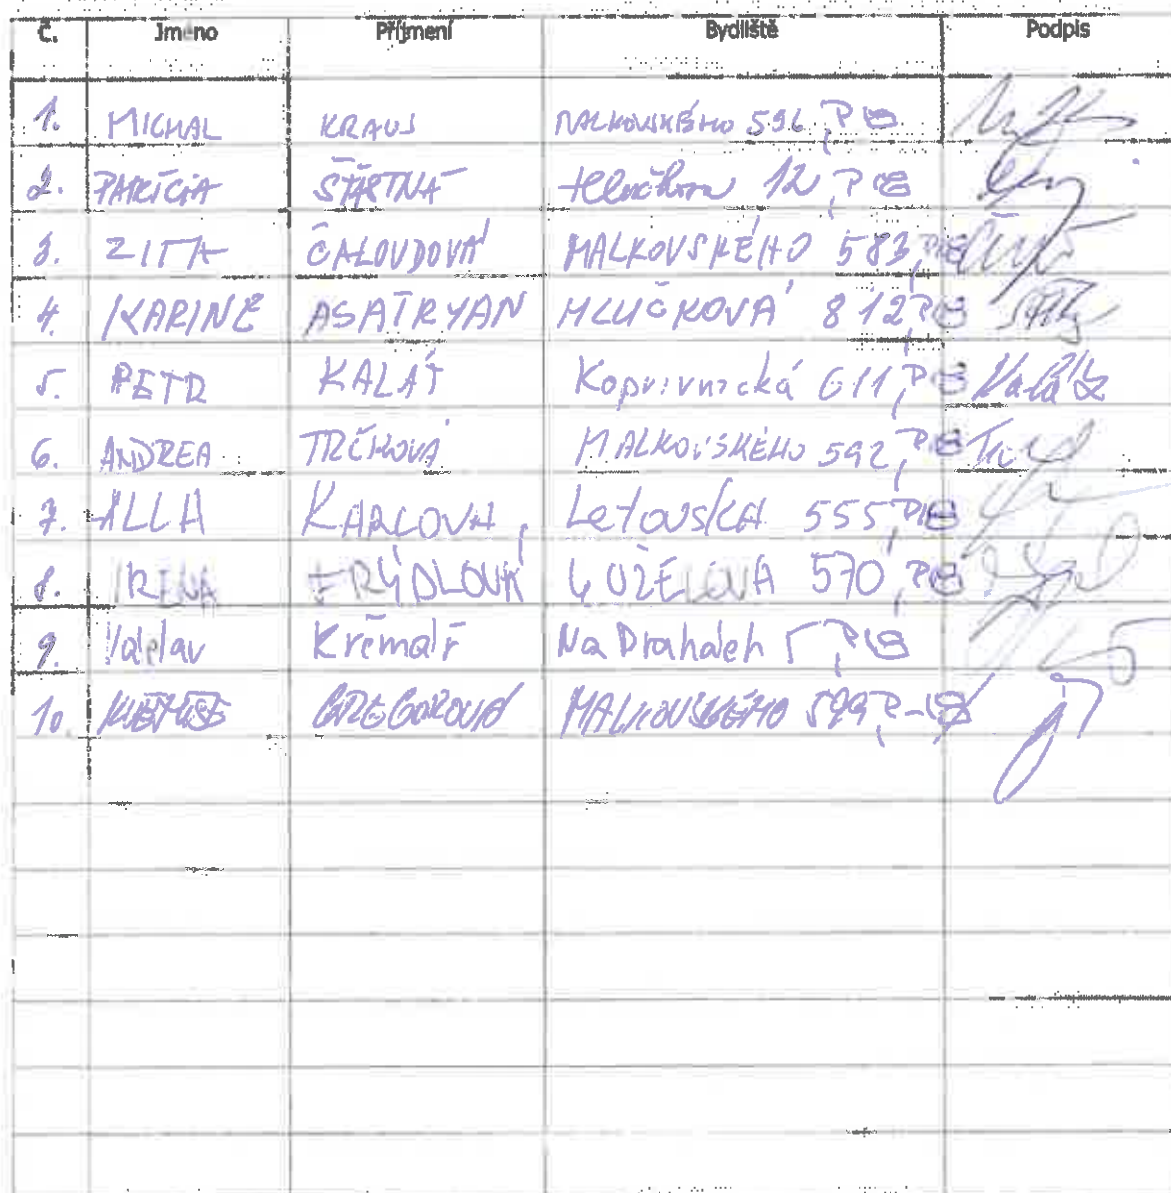 Č. Jméno Příjmení Bydliště Podpis
1. MICHAL KRAUS MALKOVSKÉHO 596, P18
2. PATRÍCIA ŠŤASTNÁ Hlučkova 12, P18
3. ZITA ČALOUDOVÁ MALKOVSKÉHO 583, P18
4. KARINE ASATRYAN HLUČKOVÁ 812, P18
5. PETR KALÁT Koprivnická 611, P18
6. ANDREA TRČKOVÁ MALKOVSKÉHO 592, P18
7. ALLA KARLOVA, Letovská 555, P18
8. IRENA FRÝDLOVÁ 570, P18
9. Václav Krčmář Na Drahách 5, P18
10. GREGOROVÁ MALKOVSKÉHO 599, P-18